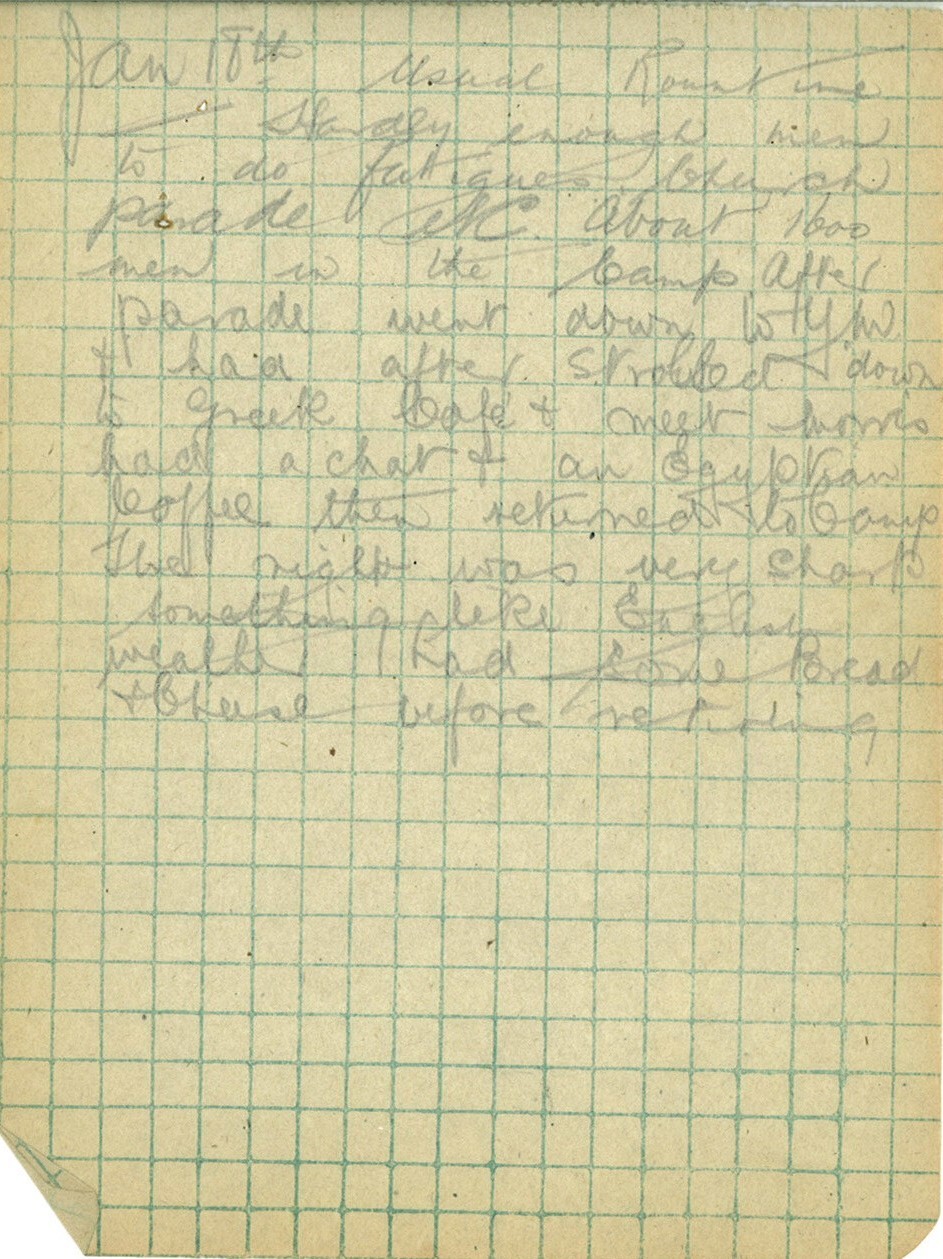 Jan 18th Usual Rountine
— Hardly enough men
to do fatigues. Church
parade etc. About 1600
men in the Camp After
parade went down to Y.M.
& had after Strolled down
to Greek Café & meet Morris
had a chat & an Egyptian
Coffee then returned to Camp
The night was very sharp
something like English
weather I had some Bread
& Cheese before retiring